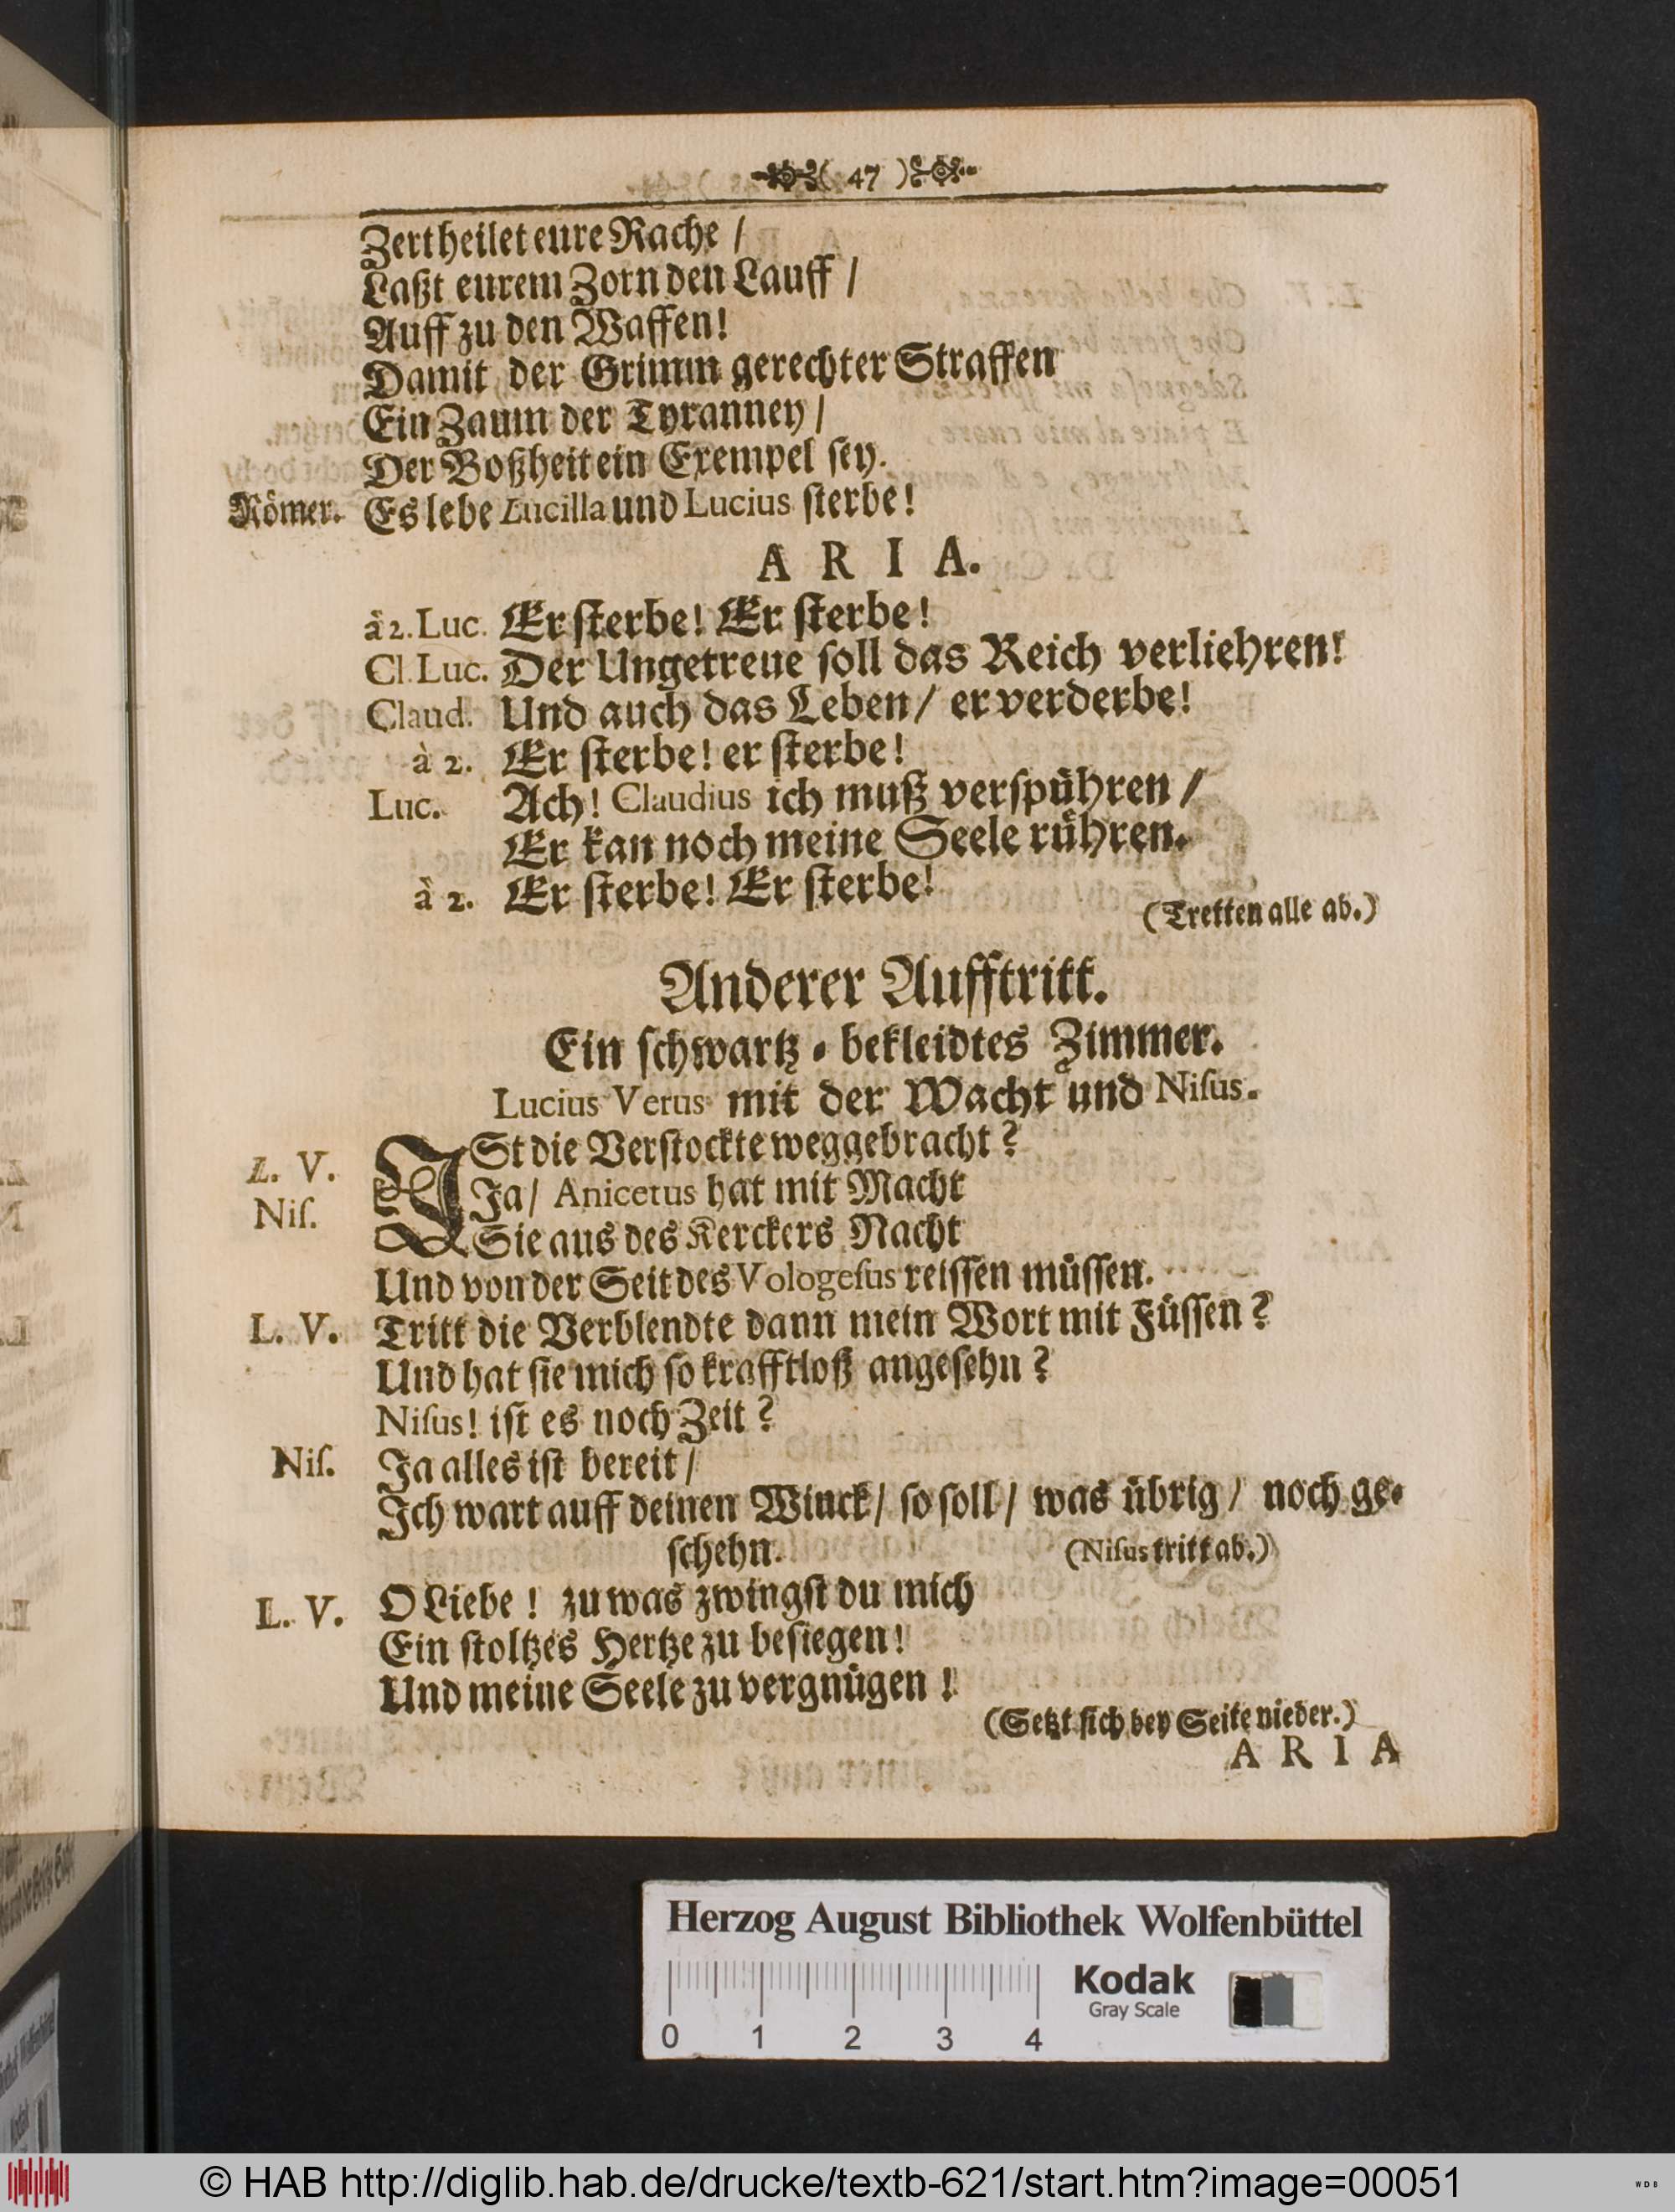 ( 47 )
Zertheilet eure Rache /
Laßt eurem Zorn den Lauff /
Auff zu den Waffen!
Damit der Grimm gerechter Straffen
Ein Zaum der Tyranney /
Der Boßheit ein Exempel sey.
Römer. Es lebe Lucilla und Lucius sterbe!
A R I A.
à 2. Luc. Er sterbe! Er sterbe!
Cl. Luc. Der Ungetreue soll das Reich verliehren!
Claud. Und auch das Leben / er verderbe!
à 2. Er sterbe! er sterbe!
Luc. Ach! Claudius ich muß verspühren /
Er kan noch meine Seele rühren.
à 2. Er sterbe! Er sterbe!
(Tretten alle ab.)
Anderer Aufftritt.
Ein schwartz-bekleidtes Zimmer.
Lucius Verus mit der Wacht und Nisus.
L. V. ISt die Verstockte weggebracht?
Nis. Ja / Anicetus hat mit Macht
Sie aus des Kerckers Nacht
Und von der Seit des Vologesus reissen müssen.
L. V. Tritt die Verblendte dann mein Wort mit Füssen?
Und hat sie mich so krafftloß angesehn?
Nisus! ist es noch Zeit?
Nis. Ja alles ist bereit /
Ich wart auff deinen Winck / so soll / was übrig / noch ge-
schehn. (Nisus tritt ab.)
L. V. O Liebe! zu was zwingst du mich
Ein stoltzes Hertze zu besiegen!
Und meine Seele zu vergnügen!
(Setzt sich bey Seite nieder.)
A R I A
Herzog August Bibliothek Wolfenbüttel
Kodak
Gray Scale
0 1 2 3 4
© HAB http://diglib.hab.de/drucke/textb-621/start.htm?image=00051
WDB